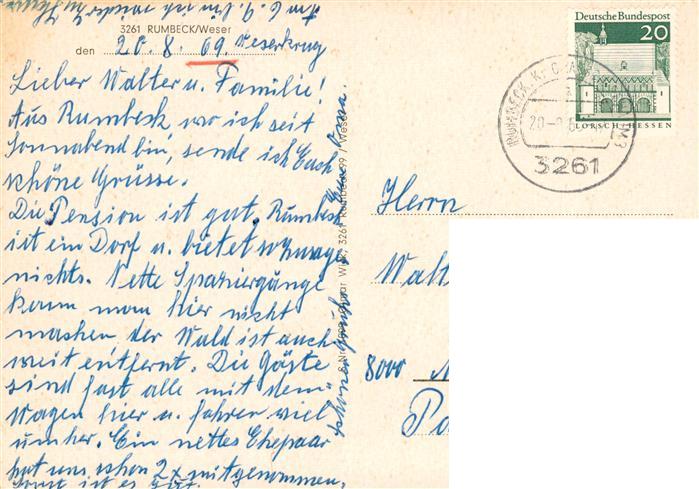 3261 RUMBECK/Weser
den 20.8.69. Weserkrug
Lieber Walter u. Familie!
Aus Rumbeck wo ich seit
Sonnabend bin, sende ich Euch
schöne Grüsse.
Die Pension ist gut. Rumbeck
ist ein Dorf u. bietet sozusagen
nichts. Nette Spaziergänge
kann man hier nicht
machen der Wald ist auch
weit entfernt. Die Gäste
sind fast alle mit dem
Wagen hier u. fahren viel
umher. Ein nettes Ehepaar
hat uns schon 2x mitgenommen,
sonst ist es
3261 Rumbeck
/ Weser
Deutsche Bundespost
20
LORSCH/HESSEN
RUMBECK
3261
Herrn
Walt
8000